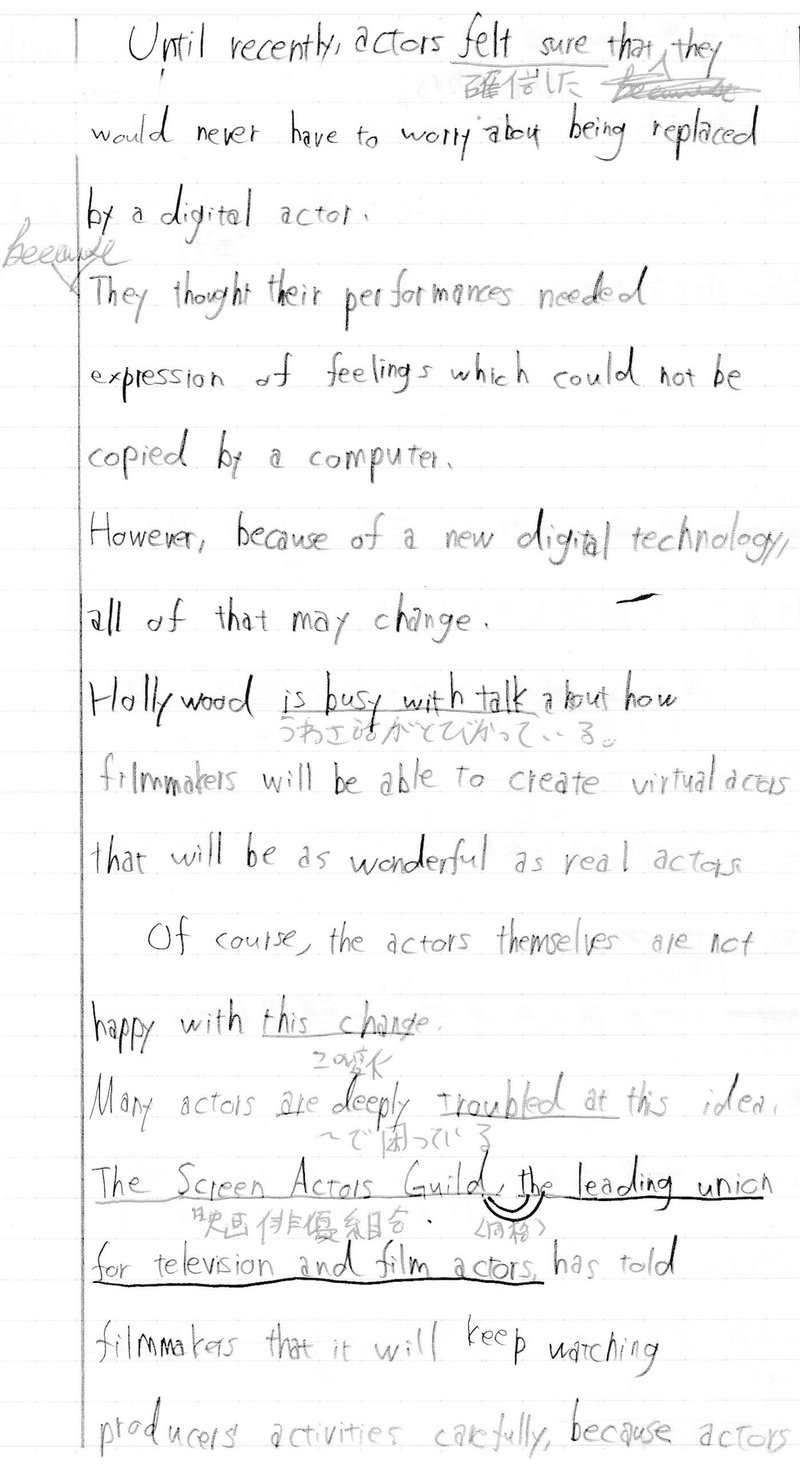 Until recently, actors felt sure that they
確信した because
would never have to worry about being replaced
by a digital actor.
because
They thought their performances needed
expression of feelings which could not be
copied by a computer.
However, because of a new digital technology,
all of that may change.
Hollywood is busy with talk about how
うわさ話がとびかっている。
filmmakers will be able to create virtual actors
that will be as wonderful as real actors
Of course, the actors themselves are not
happy with this change.
この変化
Many actors are deeply troubled at this idea.
～で困っている
The Screen Actors Guild, the leading union
映画俳優組合. 〈同格〉
for television and film actors, has told
filmmakers that it will keep watching
producers' activities carefully, because actors